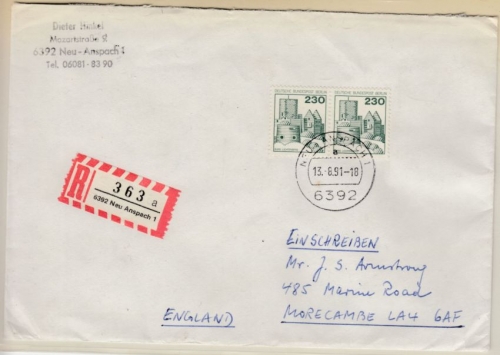 Dieter Hickel
Mozartstraße 2
6392 Neu-Anspach 1
Tel. 06081-8390
DEUTSCHE BUNDESPOST BERLIN
230
DEUTSCHE BUNDESPOST BERLIN
230
NEU-ANSPACH 1
a
13.-6.91-18
6392
R
363 a
6392 Neu Anspach 1
EINSCHREIBEN
Mr. J. S. Armstrong
485 Marine Road
MORECAMBE LA4 6AF
ENGLAND